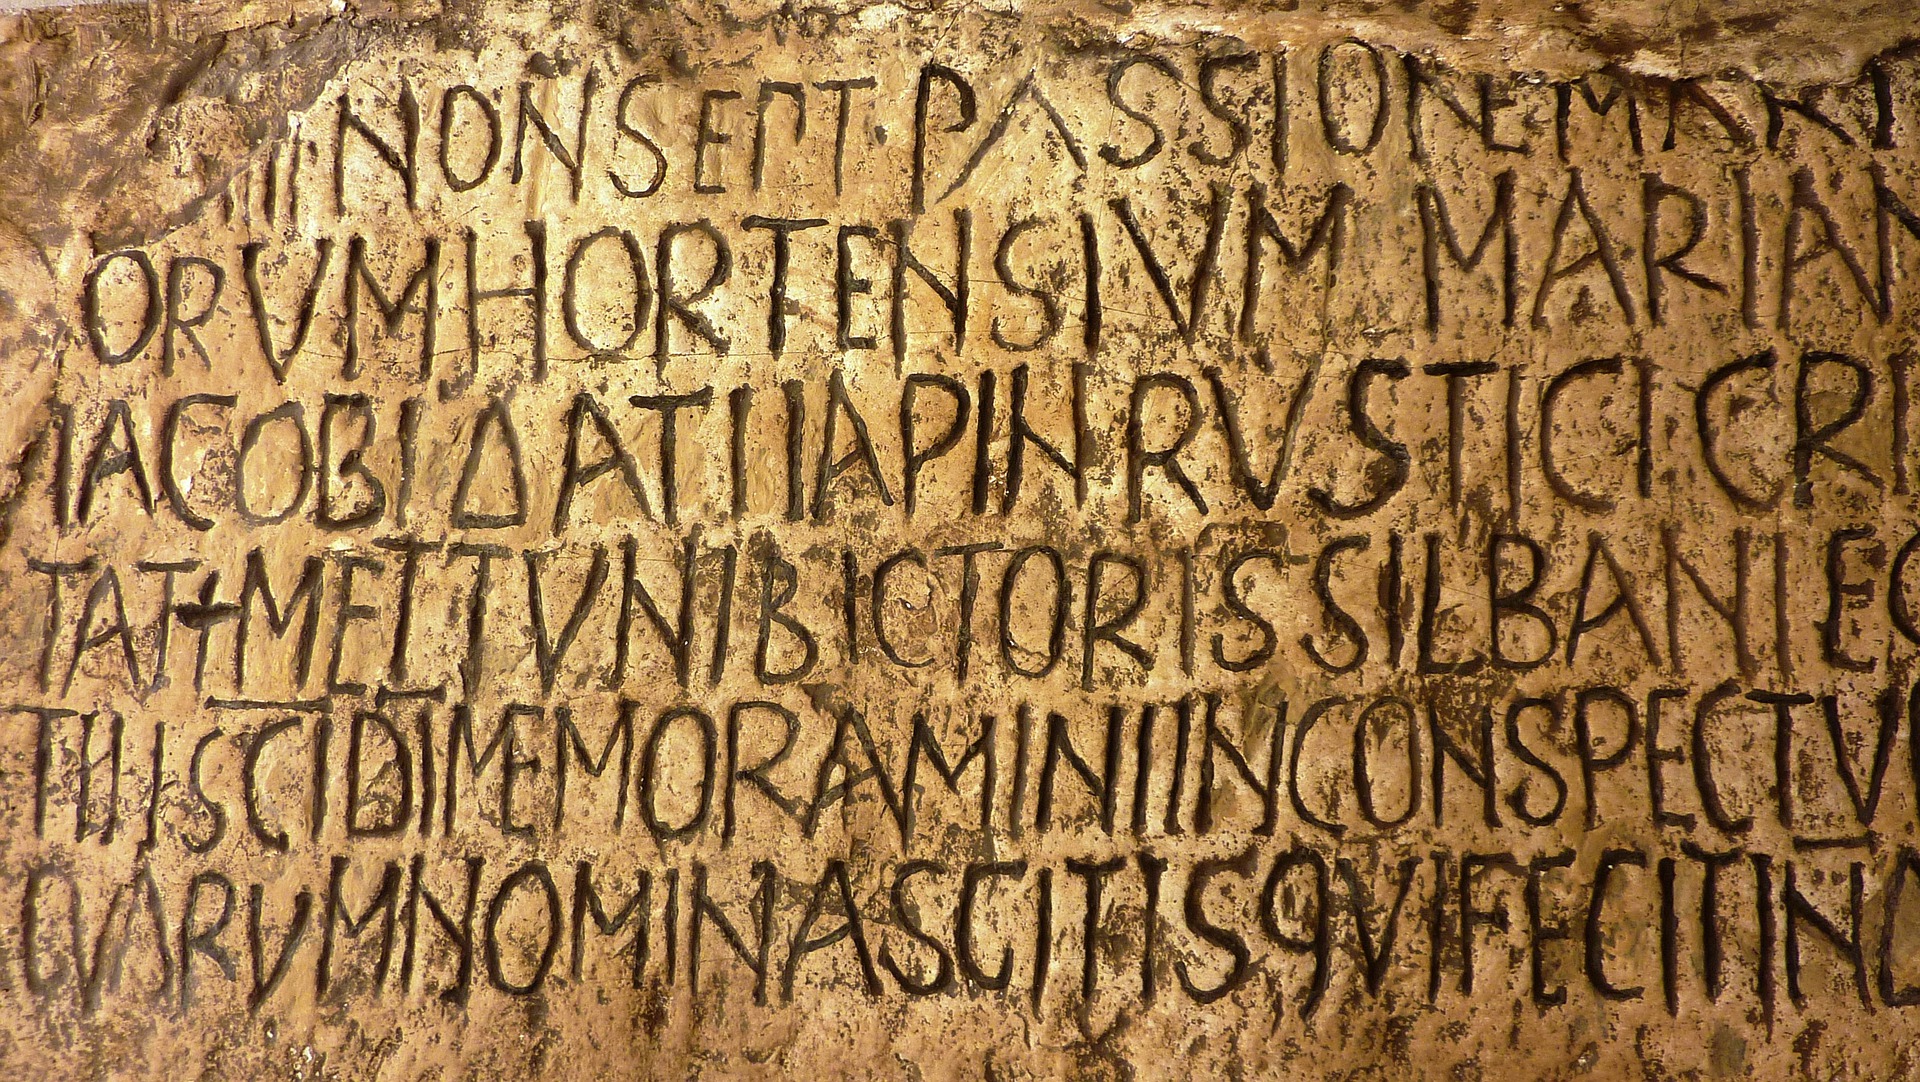 III NON SEPT · PASSIONE MARTI
ORVM HORTENSIVM MARIAN
IACOBI ΔATI IAPIN RVSTICI CRI
TATI + METTVNI BICTORIS SILBANI EG
SCI DI MEMORAMINI IN CONSPECTV
QVARVM NOMINA SCITIS QVI FECIT IND